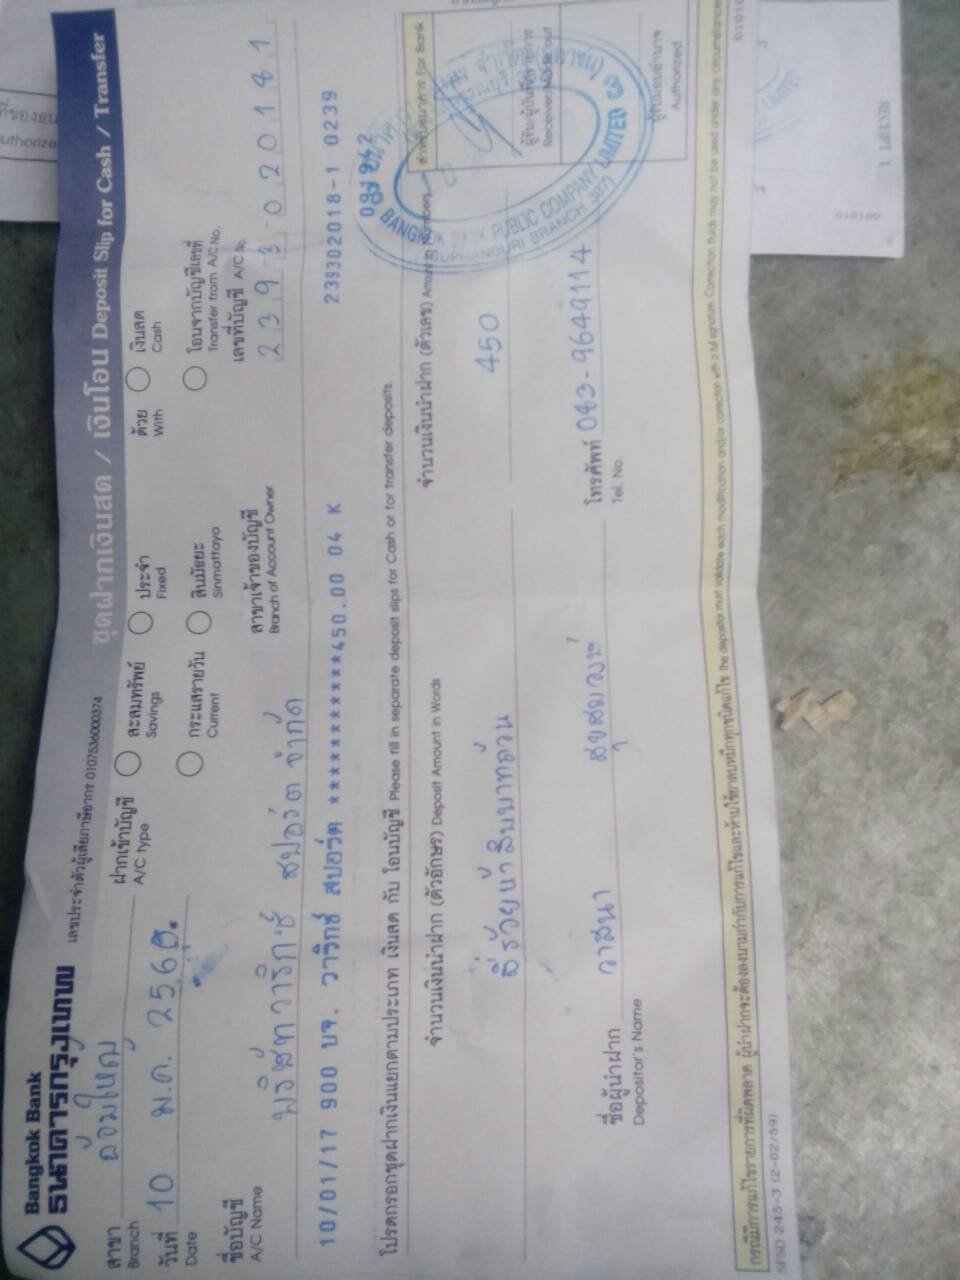 Bangkok Bank
ธนาคารกรุงเทพ
เลขประจำตัวผู้เสียภาษีอากร 0107536000374
ชุดฝากเงินสด / เงินโอน Deposit Slip for Cash / Transfer
สาขา Branch อ้อมใหญ่
วันที่ Date 10 ม.ค. 2560.
ฝากเข้าบัญชี A/C type
สะสมทรัพย์ Savings
ประจำ Fixed
กระแสรายวัน Current
สินมัธยะ Sinmattaya
ด้วย With
เงินสด Cash
โอนจากบัญชีเลขที่ Transfer from A/C No.
ชื่อบัญชี A/C Name บริษัทวาริกซ์ สปอร์ต จำกัด
สาขาเจ้าของบัญชี Branch of Account Owner
เลขที่บัญชี A/C No. 239-3-020181
10/01/17 900 บจ. วาริกซ์ สปอร์ต ************450.00 04 K 239302018-1 0239
โปรดกรอกชุดฝากเงินแยกตามประเภท เงินสด กับ โอนบัญชี Please fill in separate deposit slips for Cash or for transfer deposits.
จำนวนเงินนำฝาก (ตัวอักษร) Deposit Amount in Words
จำนวนเงินนำฝาก (ตัวเลข) Amount in Numbers
สำหรับธนาคาร For Bank
สี่ร้อยห้าสิบบาทถ้วน
450
ผู้รับ/ผู้บันทึกรายการ
Receiver/Made out
ชื่อผู้นำฝาก Depositor's Name วาสนา สุขสมวงษ์
โทรศัพท์ Tel. No. 083-9649114
ผู้รับมอบอำนาจ
Authorized
BANGKOK BANK PUBLIC COMPANY LIMITED
SUPHANBURI BRANCH
กรณีมีการแก้ไขรายการที่ผิดพลาด ผู้นำฝากจะต้องลงนามกำกับการแก้ไขและห้ามใช้ยาลบหมึกทุกชนิดแก้ไข the depositor must validate each modification and/or correction with a full signature. Correction fluids may not be used under any circumstances
SFSD 245-3 (2-02/59)
010100